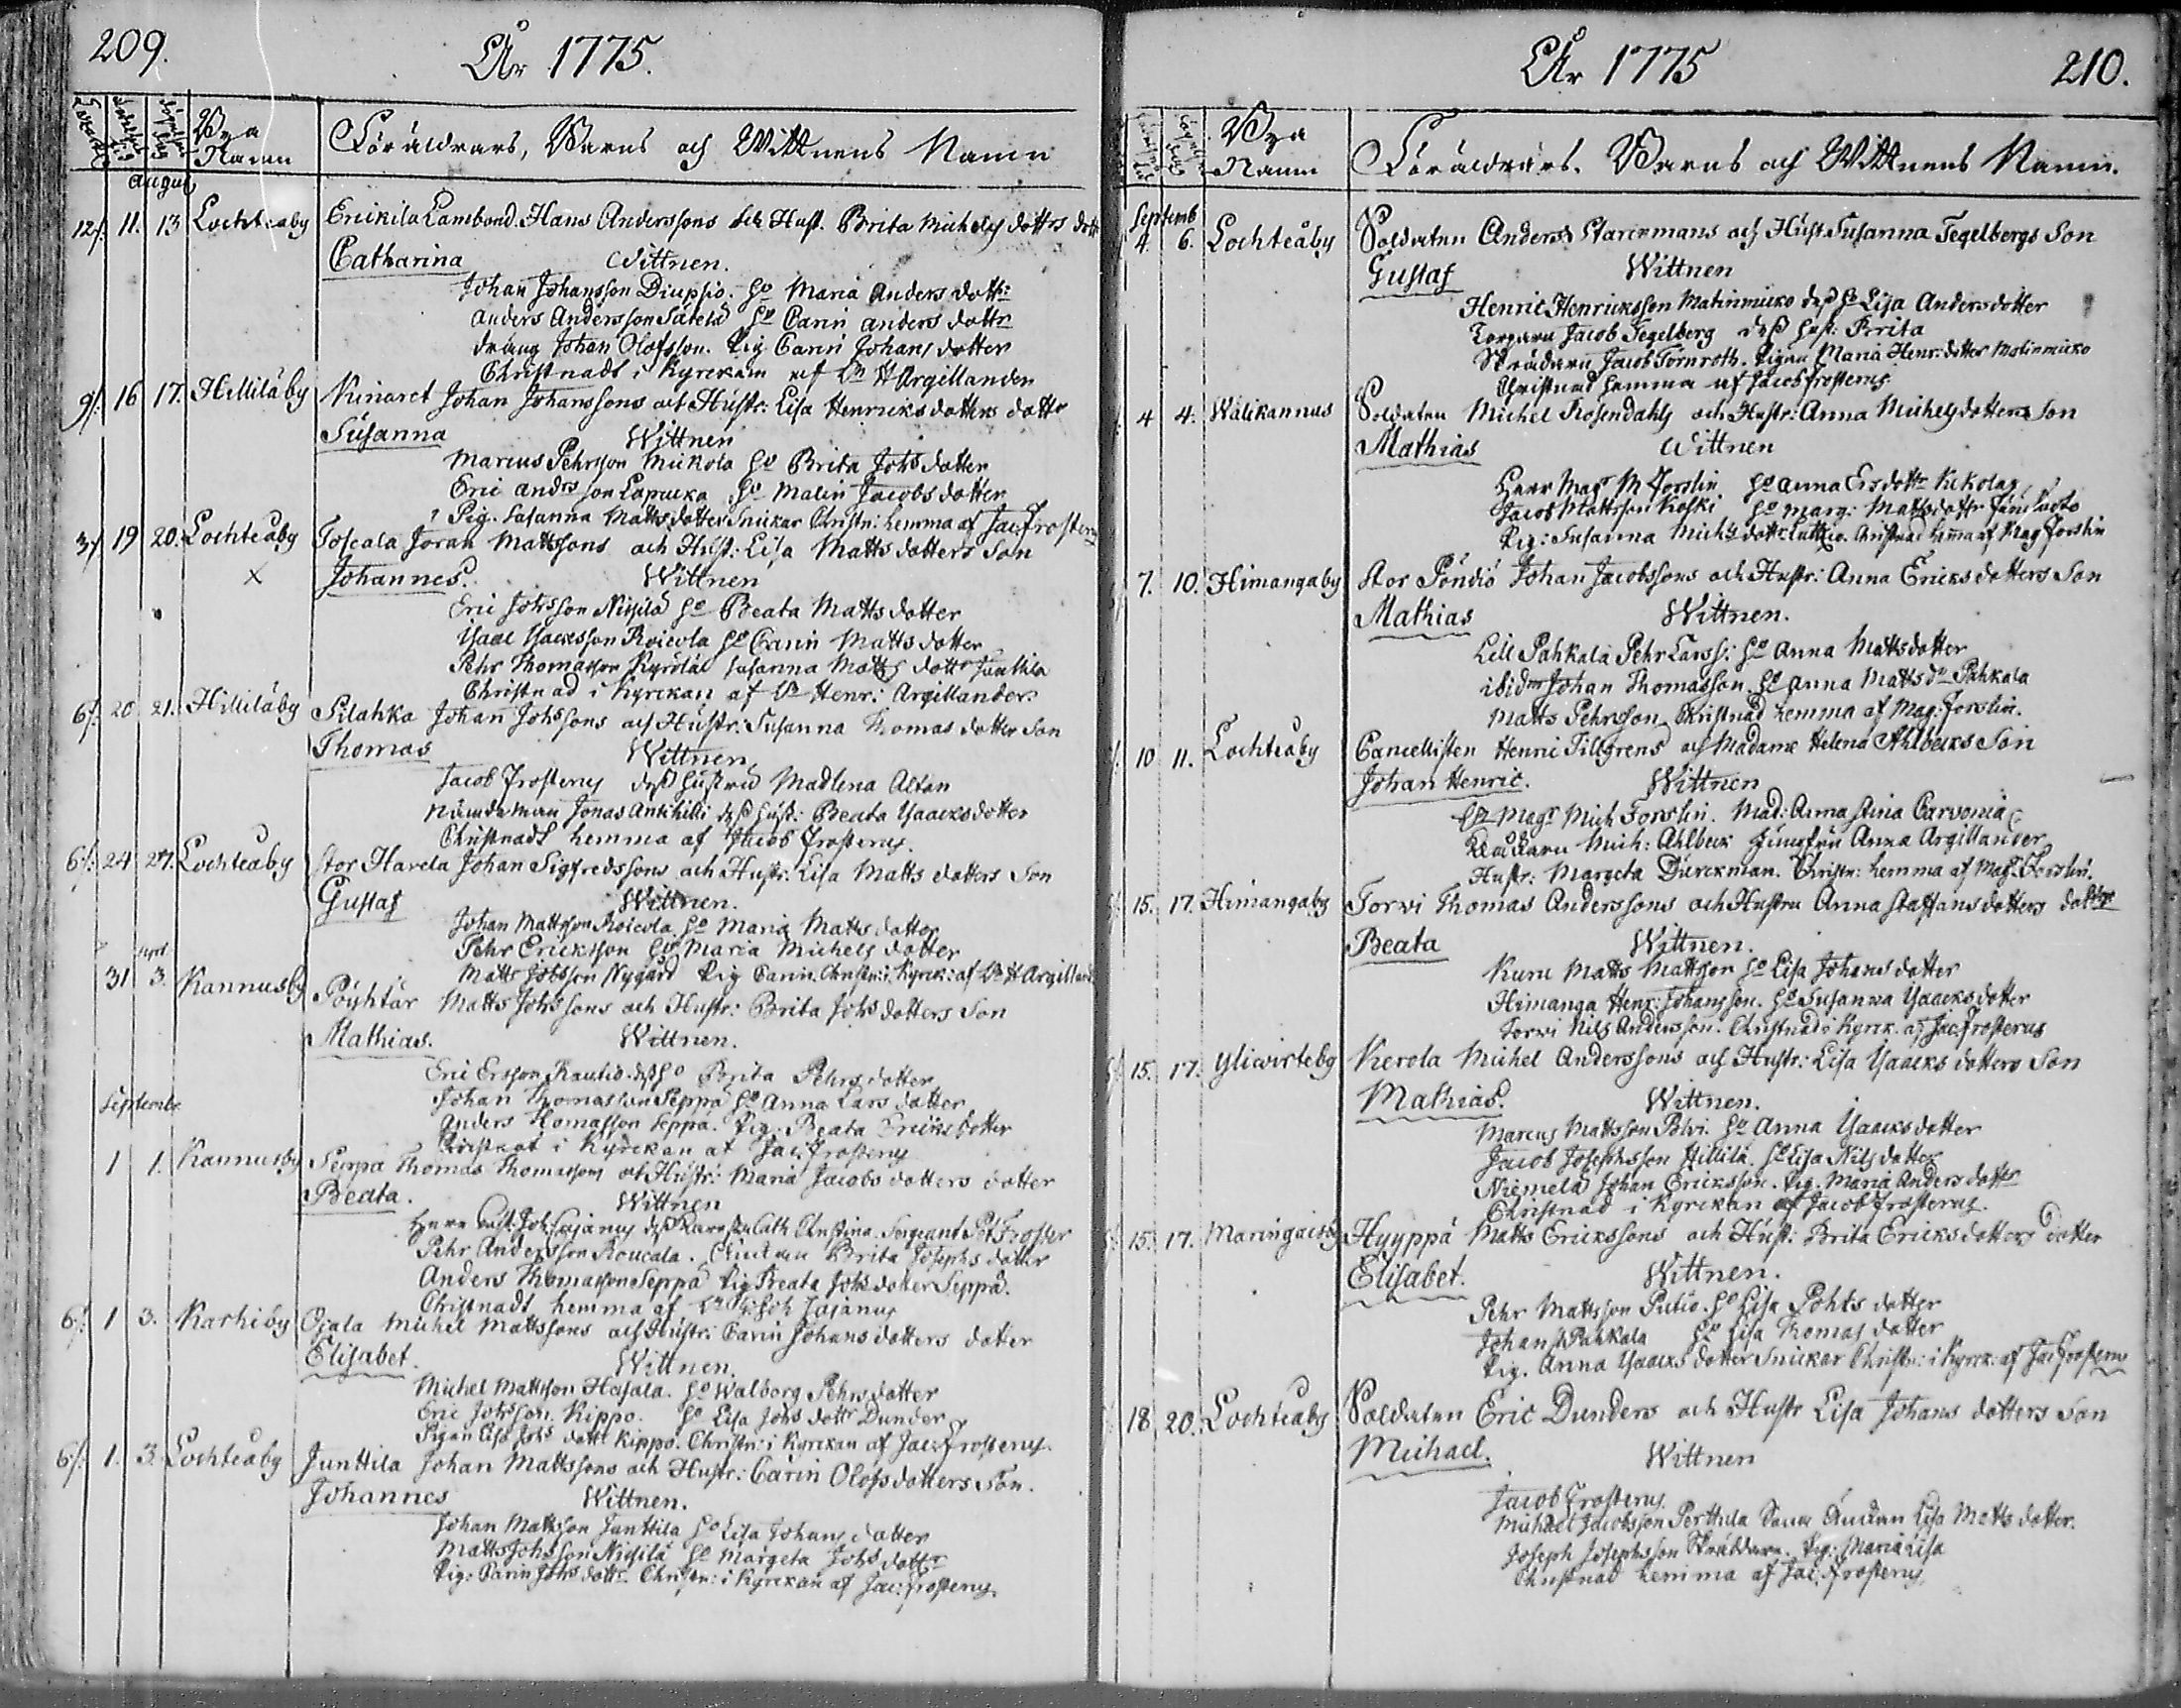 209.
År 1775.
Bya Namn
Föräldrars, Barns och Wittnens Namn
August
12/. 11. 13 Lochteåby Enikila Lambond. Hans Anderssons och Hust. Brita Michels dotters dott
Catharina Wittnen.
Johan Johansson Diupsiö. Ho Maria Anders dottr
Anders Andersson Säkelä Ho Carin anders dottr
dräng Johan Olofsson. Pig. Carin Johans dotter
Christnadt i Kyrckan af Hr H Argillander
9/. 16 17. Hillilåby Kinaret Johan Johanssons och Hustr: Lisa Henricksdotters dottr
Susanna Wittnen
Marcus Pehrsson Mickola Ho Brita Johs dotter
Eric andrs son Lapveka Ho Malin Jacobs dotter
Pig. Susanna Matts dotter Snickar Christn: hemma af Jac: Frosterus
3/. 19 20. Lochteåby Toscala Jöran Mattssons och Hust: Lisa Matts dotters Son
Johannes. Wittnen
Eric Johsson Nissilä Ho Beata Matts dotter
Isaac Isacksson Roicola Ho Carin Matts dotter
Pehr Thomasson Kyrölä Susanna Matts dottr Junttila
Christnad i Kyrckan af Hr Henr: Argillander.
6/. 20 21. Hillilåby Pilahka Johan Johssons och Hustr: Susanna Thomas dotter Son
Thomas Wittnen
Jacob Frosterus dess Hustru Madlena Alfan
Nämdeman Jonas Anttihilli dess hust: Beata Isaacksdotter
Christnadt hemma af Jacob Frosterus.
6/: 24 27. Lochteåby Stor Harela Johan Sigfredssons och Hustr: Lisa Matts dotters Son
Gustaf Wittnen.
Johan Mattsson Roicola Ho Maria Matts dotter
Pehr Ericksson Ho Maria Michels dotter
Matts Johsson Nygård Pig Carin. Christn: i Kyrck: af Hr H Argilland.
Sept
31 3. Kannusby Pöyhtär Matts Johssons och Hustr: Brita Johs dotters Son
Mathias. Wittnen.
Eric Ersson Rautio dess Ho Brita Pehrs dotter
Johan Thomasson Seppä Ho Anna Lars dotter
Anders Thomasson Seppä. Pig. Beata Ericks dotter
Christnat i Kyrckan af Jac: Frosterus
September
1 1. Kannusby Seppä Thomas Thomassons och Hustr: Maria Jacobs dotters dotter
Beata. Wittnen
Herr Past. Joh Cajanus dess Kära fru Cath Christina. Sergeant Pet Froster
Pehr Andersson Roucala. Änckan Brita Josephs dotter
Anders Thomasson Seppä Pig Beata Johs dotter Seppä.
Christnadt hemma af Hr Joh Cajanus
6/: 1 3. Karhiby Ojala Michel Mattssons och Hustr: Carin Johansdotters dotter
Elisabet. Wittnen.
Michel Mattsson Hasala. Ho Walborg Pehrsdotter
Eric Johsson. Kippo. Ho Lisa Johs dottr Dunder
Pigan Lisa Johs dottr Kippo. Christn: i Kyrckan af Jac: Frosterus.
6/: 1. 3. Lochteåby Junttila Johan Mattssons och Hustr: Carin Olofsdotters Son.
Johannes Wittnen.
Johan Mattsson Junttila Ho Lisa Johans dotter
Matts Johsson Nissilä Ho Margeta Johs dotter
Pig: Carin Johs dottr. Christn: i Kyrckan af Jac: Frosterus.
År 1775
210.
Bya Namn
Föräldrars, Barns och Wittnens Namn.
Septemb
4. 6. Lochteåby Soldaten Anders Starckmans och Hust. Susanna Tegelbergs Son
Gustaf Wittnen
Henric Henricksson Matinmicko dess Ho Lisa Andersdotter
Torparn Jacob Tegelberg dess hust: Brita
Skrädarn Jacob Törnroth. Pigan Maria Henr: dotter Matinmicko
Christnad hemma af Jacob Frosterus
4 4. Wälikannus Soldaten Michel Rosendahls och Hustr: Anna Michelsdotters Son
Mathias Wittnen
Herr Magr M Forslin Ho Anna Ersdottr Kekolag
Jacob Mattsson Koski Ho Marg: Matts dottr
Pig: Susanna Michs dottr Luttio. Christnad hemma af Mag Forslin
7. 10. Himangaby Stor Pöndiö Johan Jacobssons och Hustr: Anna Ericksdotters Son
Mathias Wittnen.
Lill Pahkala Pehr Larss: Ho Anna Mattsdotter
ibidm Johan Thomasson Ho Anna Matts dr Pahkala
Matts Pehrsson Christnad hemma af Mag: Forslin.
10 11. Lochteåby Cancellisten Henric Tillgrens och Madame Helena Ahlbecks Son
Johan Henric. Wittnen
Hr Magr Mich Forslin. Mad: Anna Stina Carvonia
Mich: Ahlbeck Jungfru Anna Argillander
Hustr: Margeta Dürckman. Christn: hemma af Magr Forslin.
15. 17. Himangaby Torvi Thomas Anderssons och Hustru Anna Staffansdotters dotter
Beata Wittnen.
Kuru Matts Mattsson Ho Lisa Johansdotter
Himanga Henr: Johansson. Ho Susanna Isaacksdotter
Torvi Nils Andersson. Christnad i Kyrck. af Jac Frosterus
15. 17. Yliwirteby Kerola Michel Anderssons och Hustr: Lisa Isaacks dotters Son
Mathias. Wittnen.
Marcus Mattsson Polvi. Ho Anna Isaacksdotter
Jacob Josephsson Hillilä. Ho Lisa Nils dotter
Niemelä Johan Ericksson. Pig. Maria Anders dotter
Christnad i Kyrckan af Jacob Frosterus.
15. 17. Maringaisby Hyyppä Matts Erickssons och Hust: Brita Ericksdotters dotter
Elisabet. Wittnen.
Pehr Mattsson Putio. Ho Lisa Pehrs dotter
Johan Pahkala Ho Lisa Thomas dotter
Pig. Anna Isaacks dotter Snickar Christn: i Kyrck: af Jac Frosterus
18 20. Lochteåby Soldaten Eric Dunders och Hustr Lisa Johans dotters Son
Michael. Wittnen
Jacob Frosterus
Michael Jacobsson Perttula Änckan Lisa Matts dotter.
Joseph Josephsson Skräddare. Pig: Maria Lisa
Christnad hemma af Jac: Frosterus